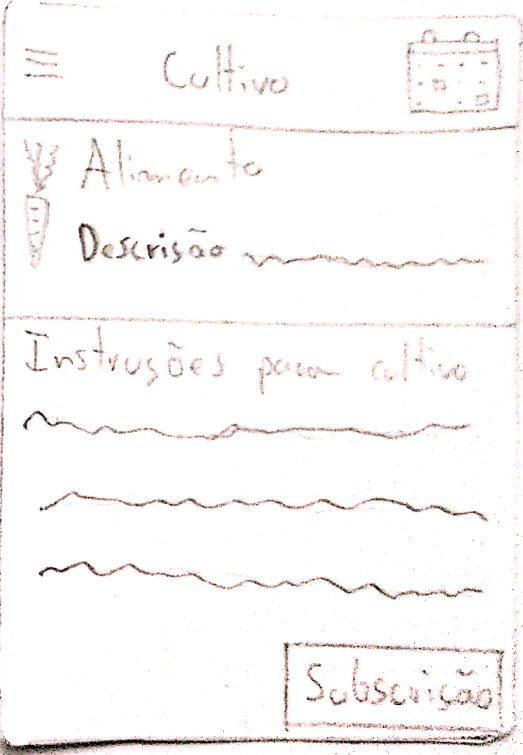 Cultivo
Alimento
Descrisão
Instruções para cultivo
Subscrição